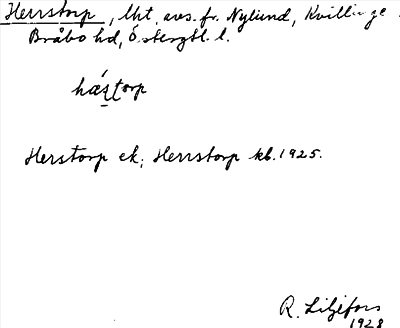 Herrstorp, lht. avs. fr. Nylund, Kvillinge
Bråbo hd, Östergtl. l.
hǽʂtorp
Herstorp ek; Herrstorp kb. 1925.
R. Liljefors
1928